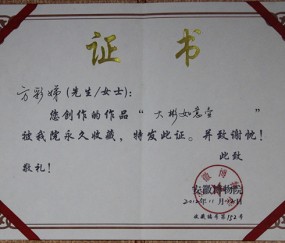 证书
方彩娣(先生/女士):
您创作的作品“大彬如意壶”
被我院永久收藏,特发此证。并致谢忱!
此致
敬礼!
安徽博物院
收藏编号第152号